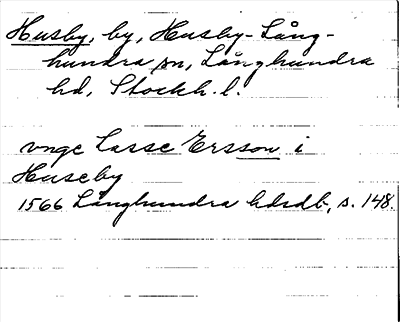 Husby, by, Husby-Lång-
hundra sn, Långhundra
hd, Stockh. l.
vnge Lasse Ersson i
Huseby
1566 Långhundra hdsdb, s. 148.